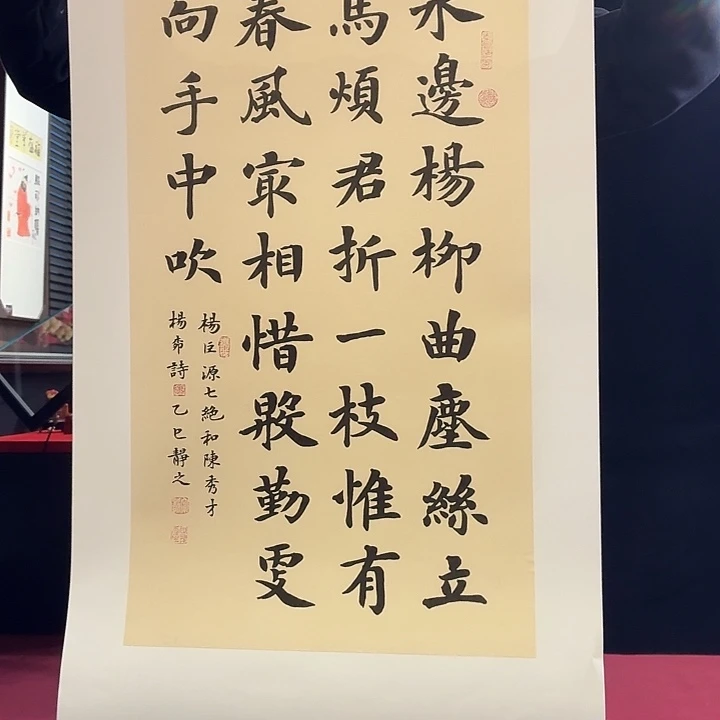 水邊楊柳曲塵絲立
馬煩君折一枝惟有
春風冣相惜殷勤更
向手中吹
楊巨源七絕和陳秀才
楊柳詩 乙巳靜之